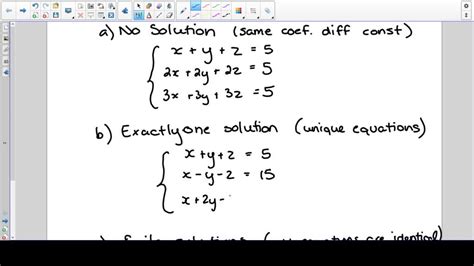 a) No Solution (same coef. diff const)
x + y + z = 5
2x + 2y + 2z = 5
3x + 3y + 3z = 5
b) Exactly one solution (unique equations)
x + y + z = 5
x - y - z = 15
x + 2y -
solutions ( are identical)